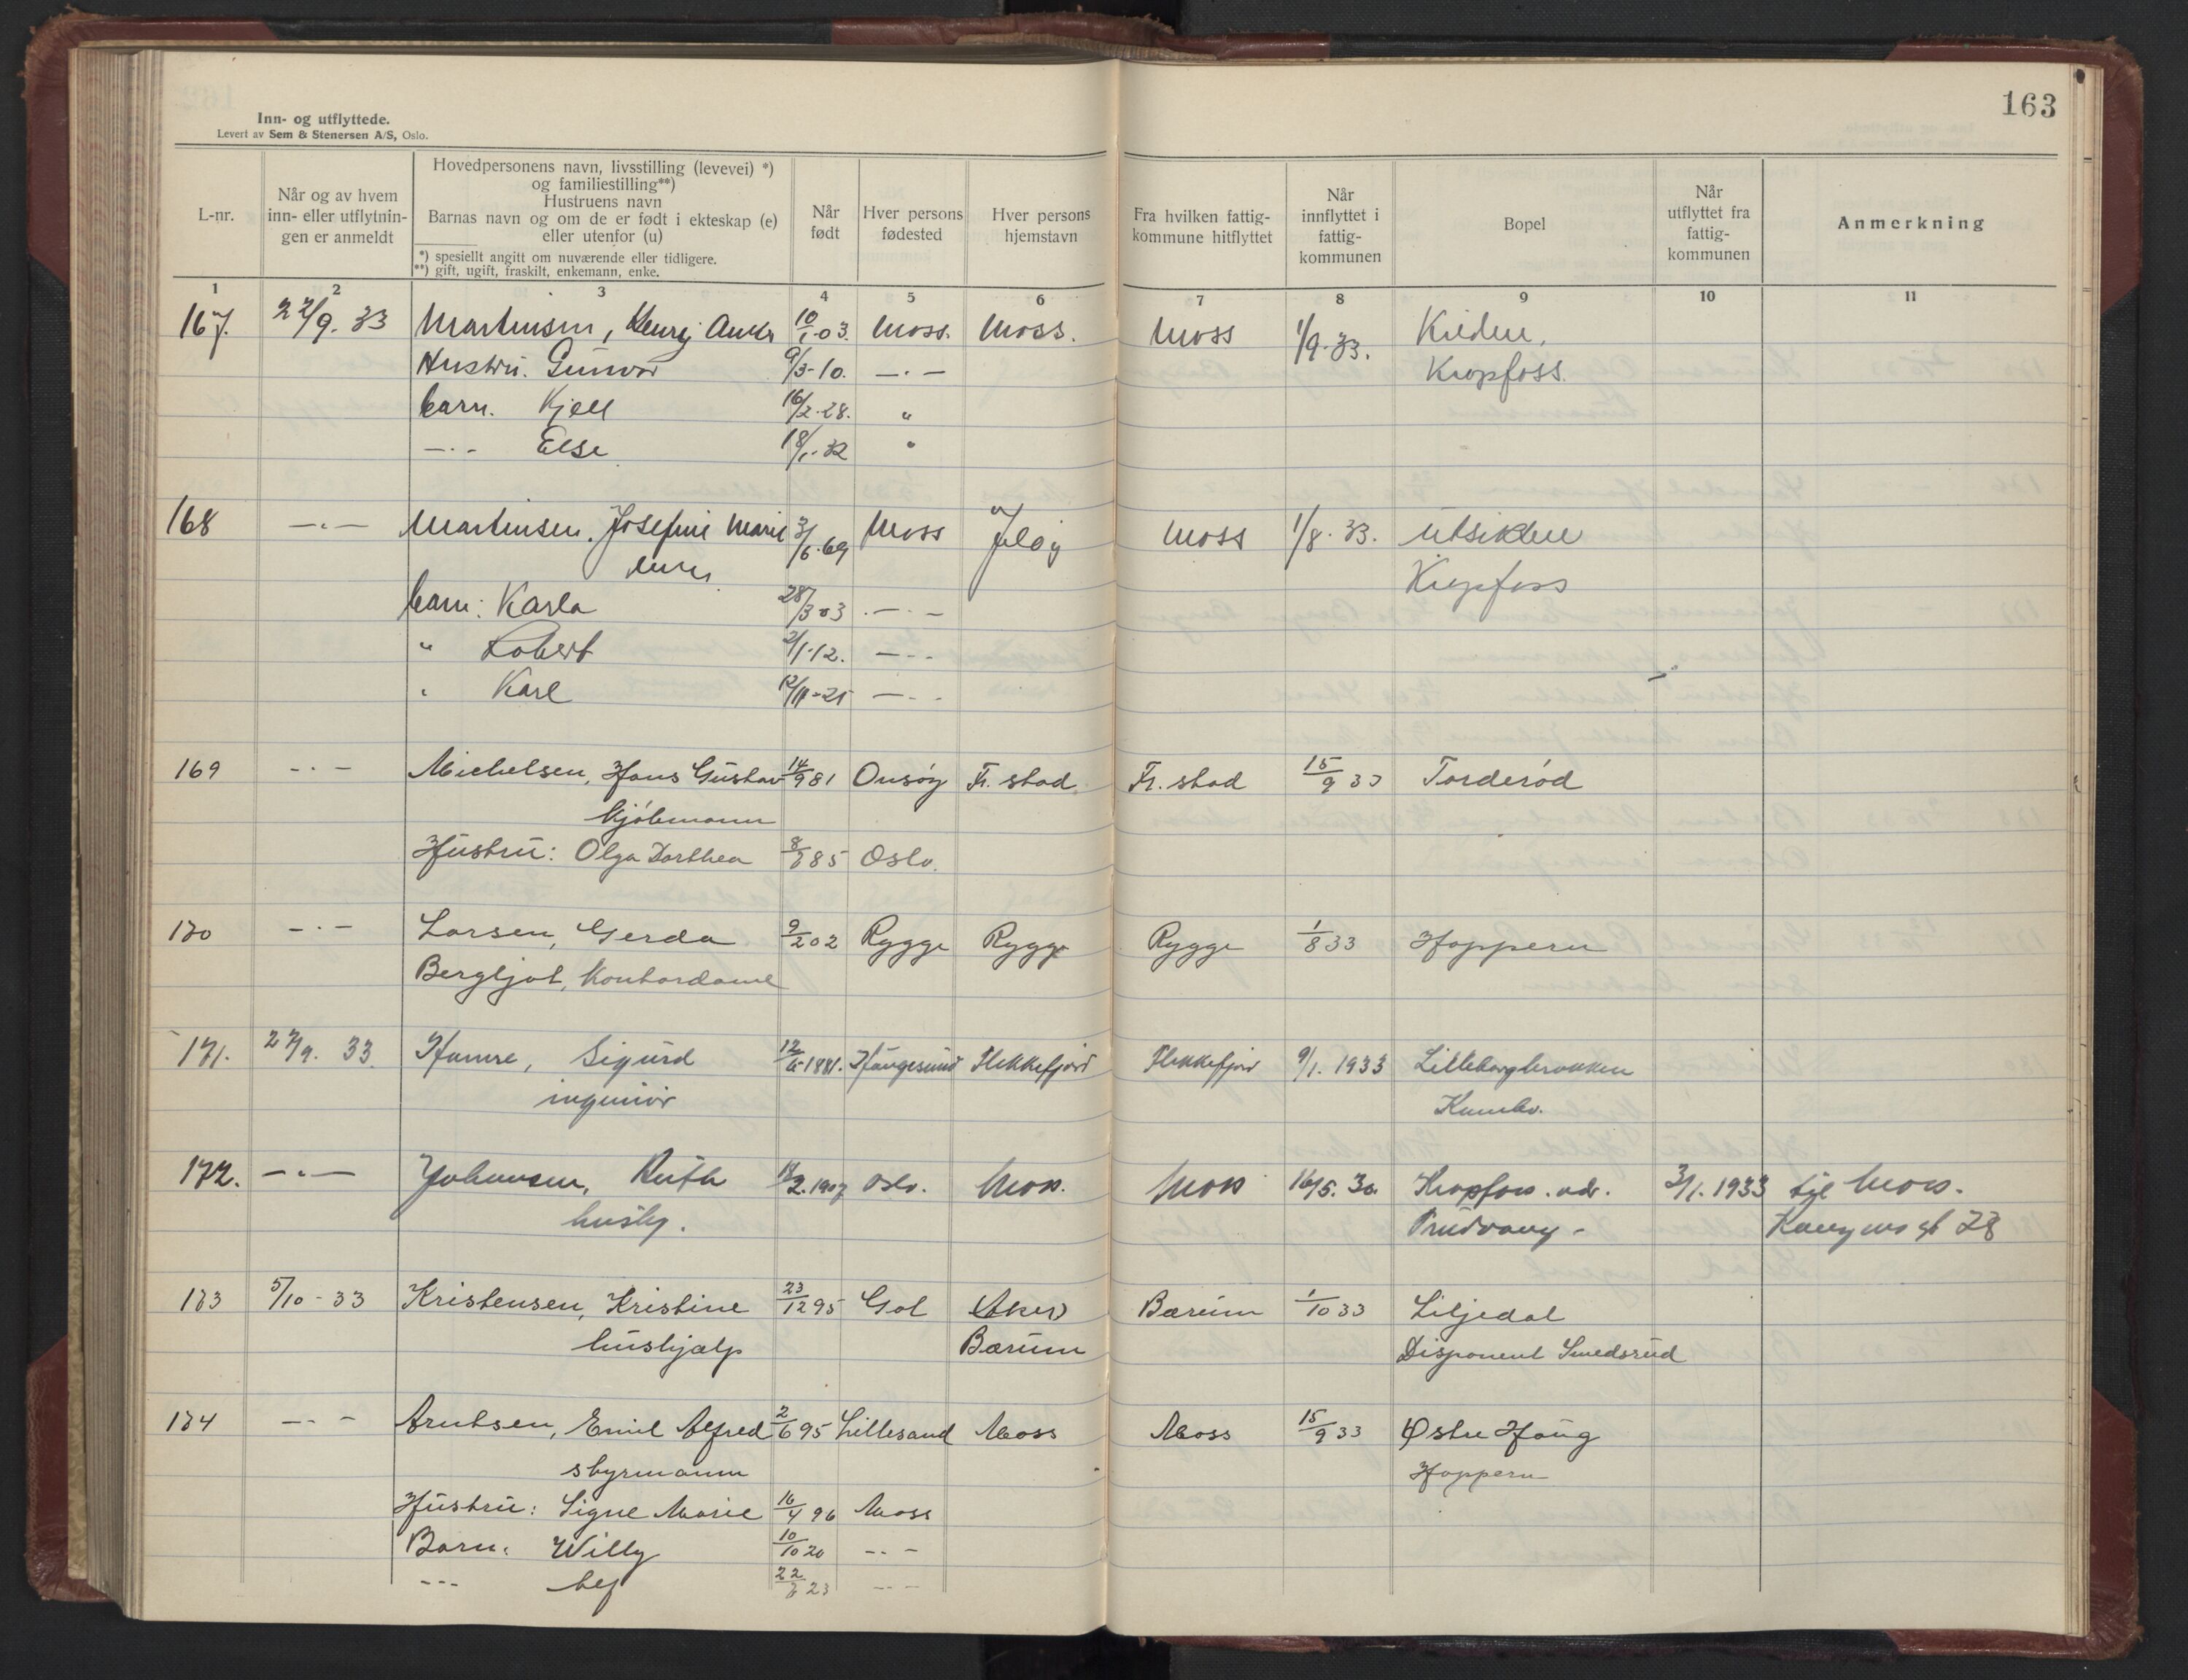 163
Inn- og utflyttede.
Levert av Sem & Stenersen A/S, Oslo.
L-nr.
Når og av hvem
inn- eller utflytnin-
gen er anmeldt
Hovedpersonens navn, livsstilling (levevei) *)
og familiestilling**)
Hustruens navn
Barnas navn og om de er født i ekteskap (e)
eller utenfor (u)
*) spesiellt angitt om nuværende eller tidligere.
**) gift, ugift, fraskilt, enkemann, enke.
Når
født
Hver persons
fødested
Hver persons
hjemstavn
Fra hvilken fattig-
kommune hitflyttet
Når
innflyttet i
fattig-
kommunen
Bopel
Når
utflyttet fra
fattig-
kommunen
Anmerkning
1 2 3 4 5 6 7 8 9 10 11
167. 22/9. 33 Martinsen, Henry 10/1-03. Moss. Moss. Moss 1/9-33.
Hustru. Gunvor 9/3-10. —·— Kropfoss.
barn. Kjell 16/2-28. "
—·- Else 18/1-32 "
168 —·— Martinsen. Josefine Marie 3/6-69 Moss Jeløy Moss 1/8-33. Utsikten
enke Kropfoss
barn: Karla 28/3-03 ·—·—
" Robert 2/1-12. —·-
" Karl 12/11-25 —·-
169 -·— Michelsen, Hans Gustav 14/9 81 Onsøy Fr. stad Fr. stad 15/9 33 Torderød
kjøbmann
Hustru: Olga Dorthea 8/8 85 Oslo.
170 —·— Larsen, Gerda 9/2 02 Rygge Rygge Rygge 1/8 33 Hoppern
Bergljot, Kontordame
171. 27/9. 33. Hamre, Sigurd 12/6 1881. Haugesund Flekkefjord Flekkefjord 9/1. 1933
ingeniør Kambo.
172. —·— Johansen, Ruth 18/2. 1907 Oslo. Moss. Moss 16/5. 30. Kropfoss. adr. 3/1. 1933 til Moss.
hushj. Trudvang - 28
173 5/10-33 Kristensen, Kristine 23/12 95 Gol Aker Bærum 1/10 33 Liljedal
hushjælp Bærum Disponent Smedsrud
174 —·— Arntsen, Emil Alfred 2/6 95 Lillesand Moss Moss 15/9 33 Østre Haug
styrmann Hoppern
Hustru: Signe Marie 16/4 96 Moss
Barn: Willy 10/10 20 —·-
-·- Leif 22/8 23 —·-